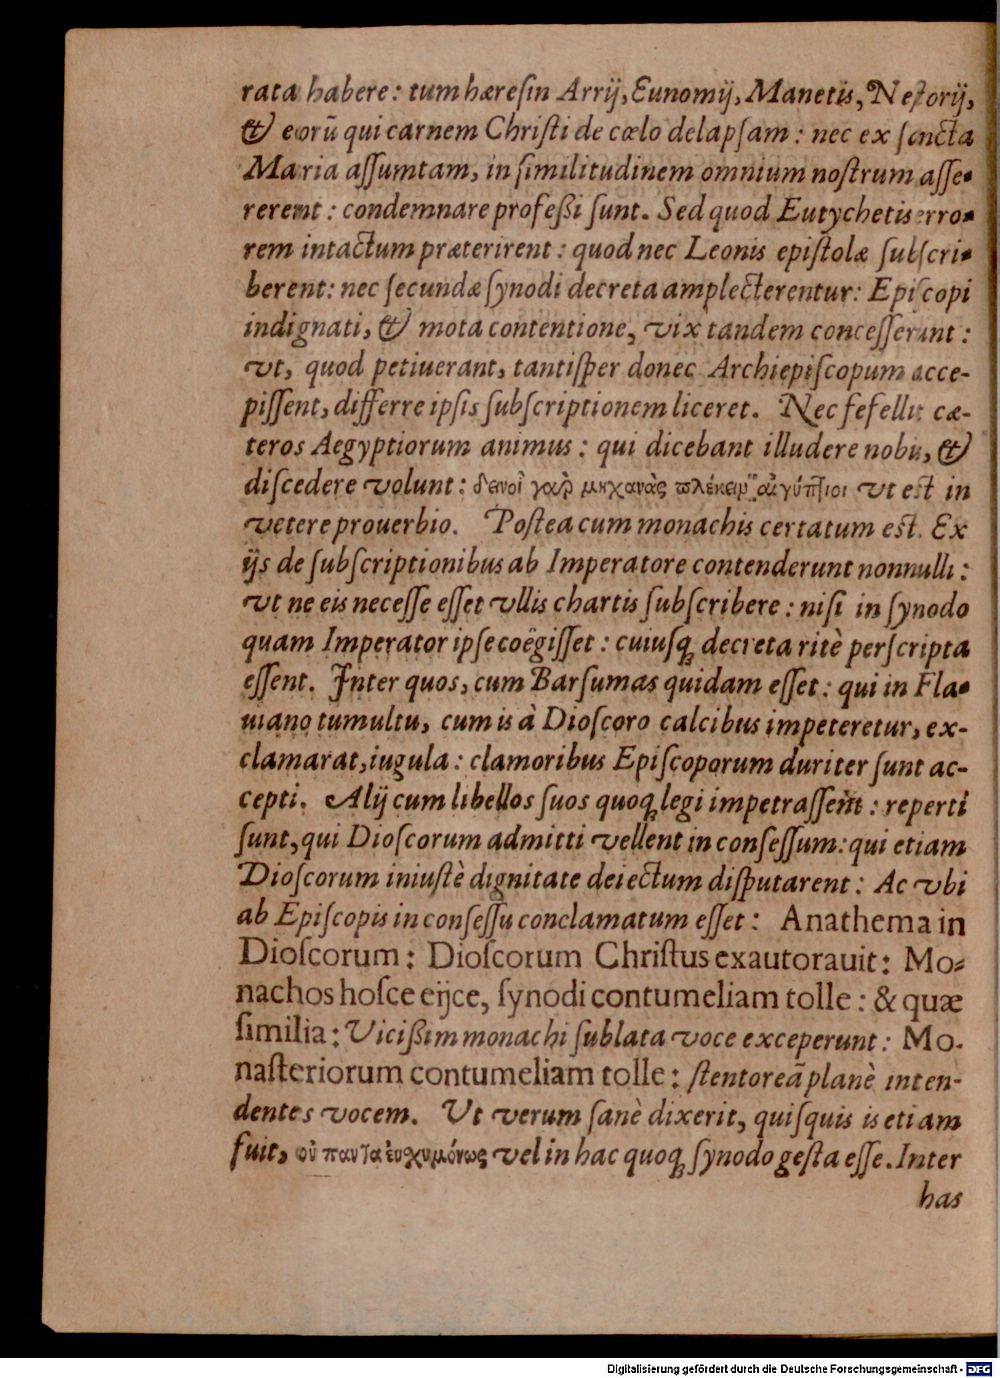 rata habere: tum hæresin Arrij, Eunomij, Manetis, Nestorij,
& eorũ qui carnem Christi de cœlo delapsam: nec ex sancta
Maria assumtam, in similitudinem omnium nostrum asse-
rerent: condemnare professi sunt. Sed quod Eutychetis erro-
rem intactum præterirent: quod nec Leonis epistolæ subscri-
berent: nec secundæ synodi decreta amplecterentur: Episcopi
indignati, & mota contentione, vix tandem concesserunt:
vt, quod petiuerant, tantisper donec Archiepiscopum acce-
pissent, differre ipsis subscriptionem liceret. Nec fefellit cæ-
teros Aegyptiorum animus: qui dicebant illudere nobis, &
discedere volunt: δεινοὶ γαὰρ μηχανὰς πλέκειν αἰγύπτιοι vt est in
vetere prouerbio. Postea cum monachis certatum est. Ex
ijs de subscriptionibus ab Imperatore contenderunt nonnulli:
vt ne eis necesse esset vllis chartis subscribere: nisi in synodo
quam Imperator ipse coëgisset: cuiusq; decreta ritè perscripta
essent. Inter quos, cum Barsumas quidam esset: qui in Fla-
uiano tumultu, cum is à Dioscoro calcibus impeteretur, ex-
clamarat, iugula: clamoribus Episcoporum duriter sunt ac-
cepti. Alij cum libellos suos quoq; legi impetrassent: reperti
sunt, qui Dioscorum admitti vellent in consessum: qui etiam
Dioscorum iniustè dignitate deiectum disputarent: Ac vbi
ab Episcopis in consessu conclamatum esset: Anathema in
Dioscorum: Dioscorum Christus exautorauit: Mo-
nachos hosce eijce, synodi contumeliam tolle: & quæ
similia: Vicissim monachi sublata voce exceperunt: Mo-
nasteriorum contumeliam tolle: stentoreã planè inten-
dentes vocem. Vt verum sanè dixerit, quisquis is etiam
fuit, οὐ παντα εὐσχημόνως vel in hac quoq; synodo gesta esse. Inter
has
Digitalisierung gefördert durch die Deutsche Forschungsgemeinschaft - DFG